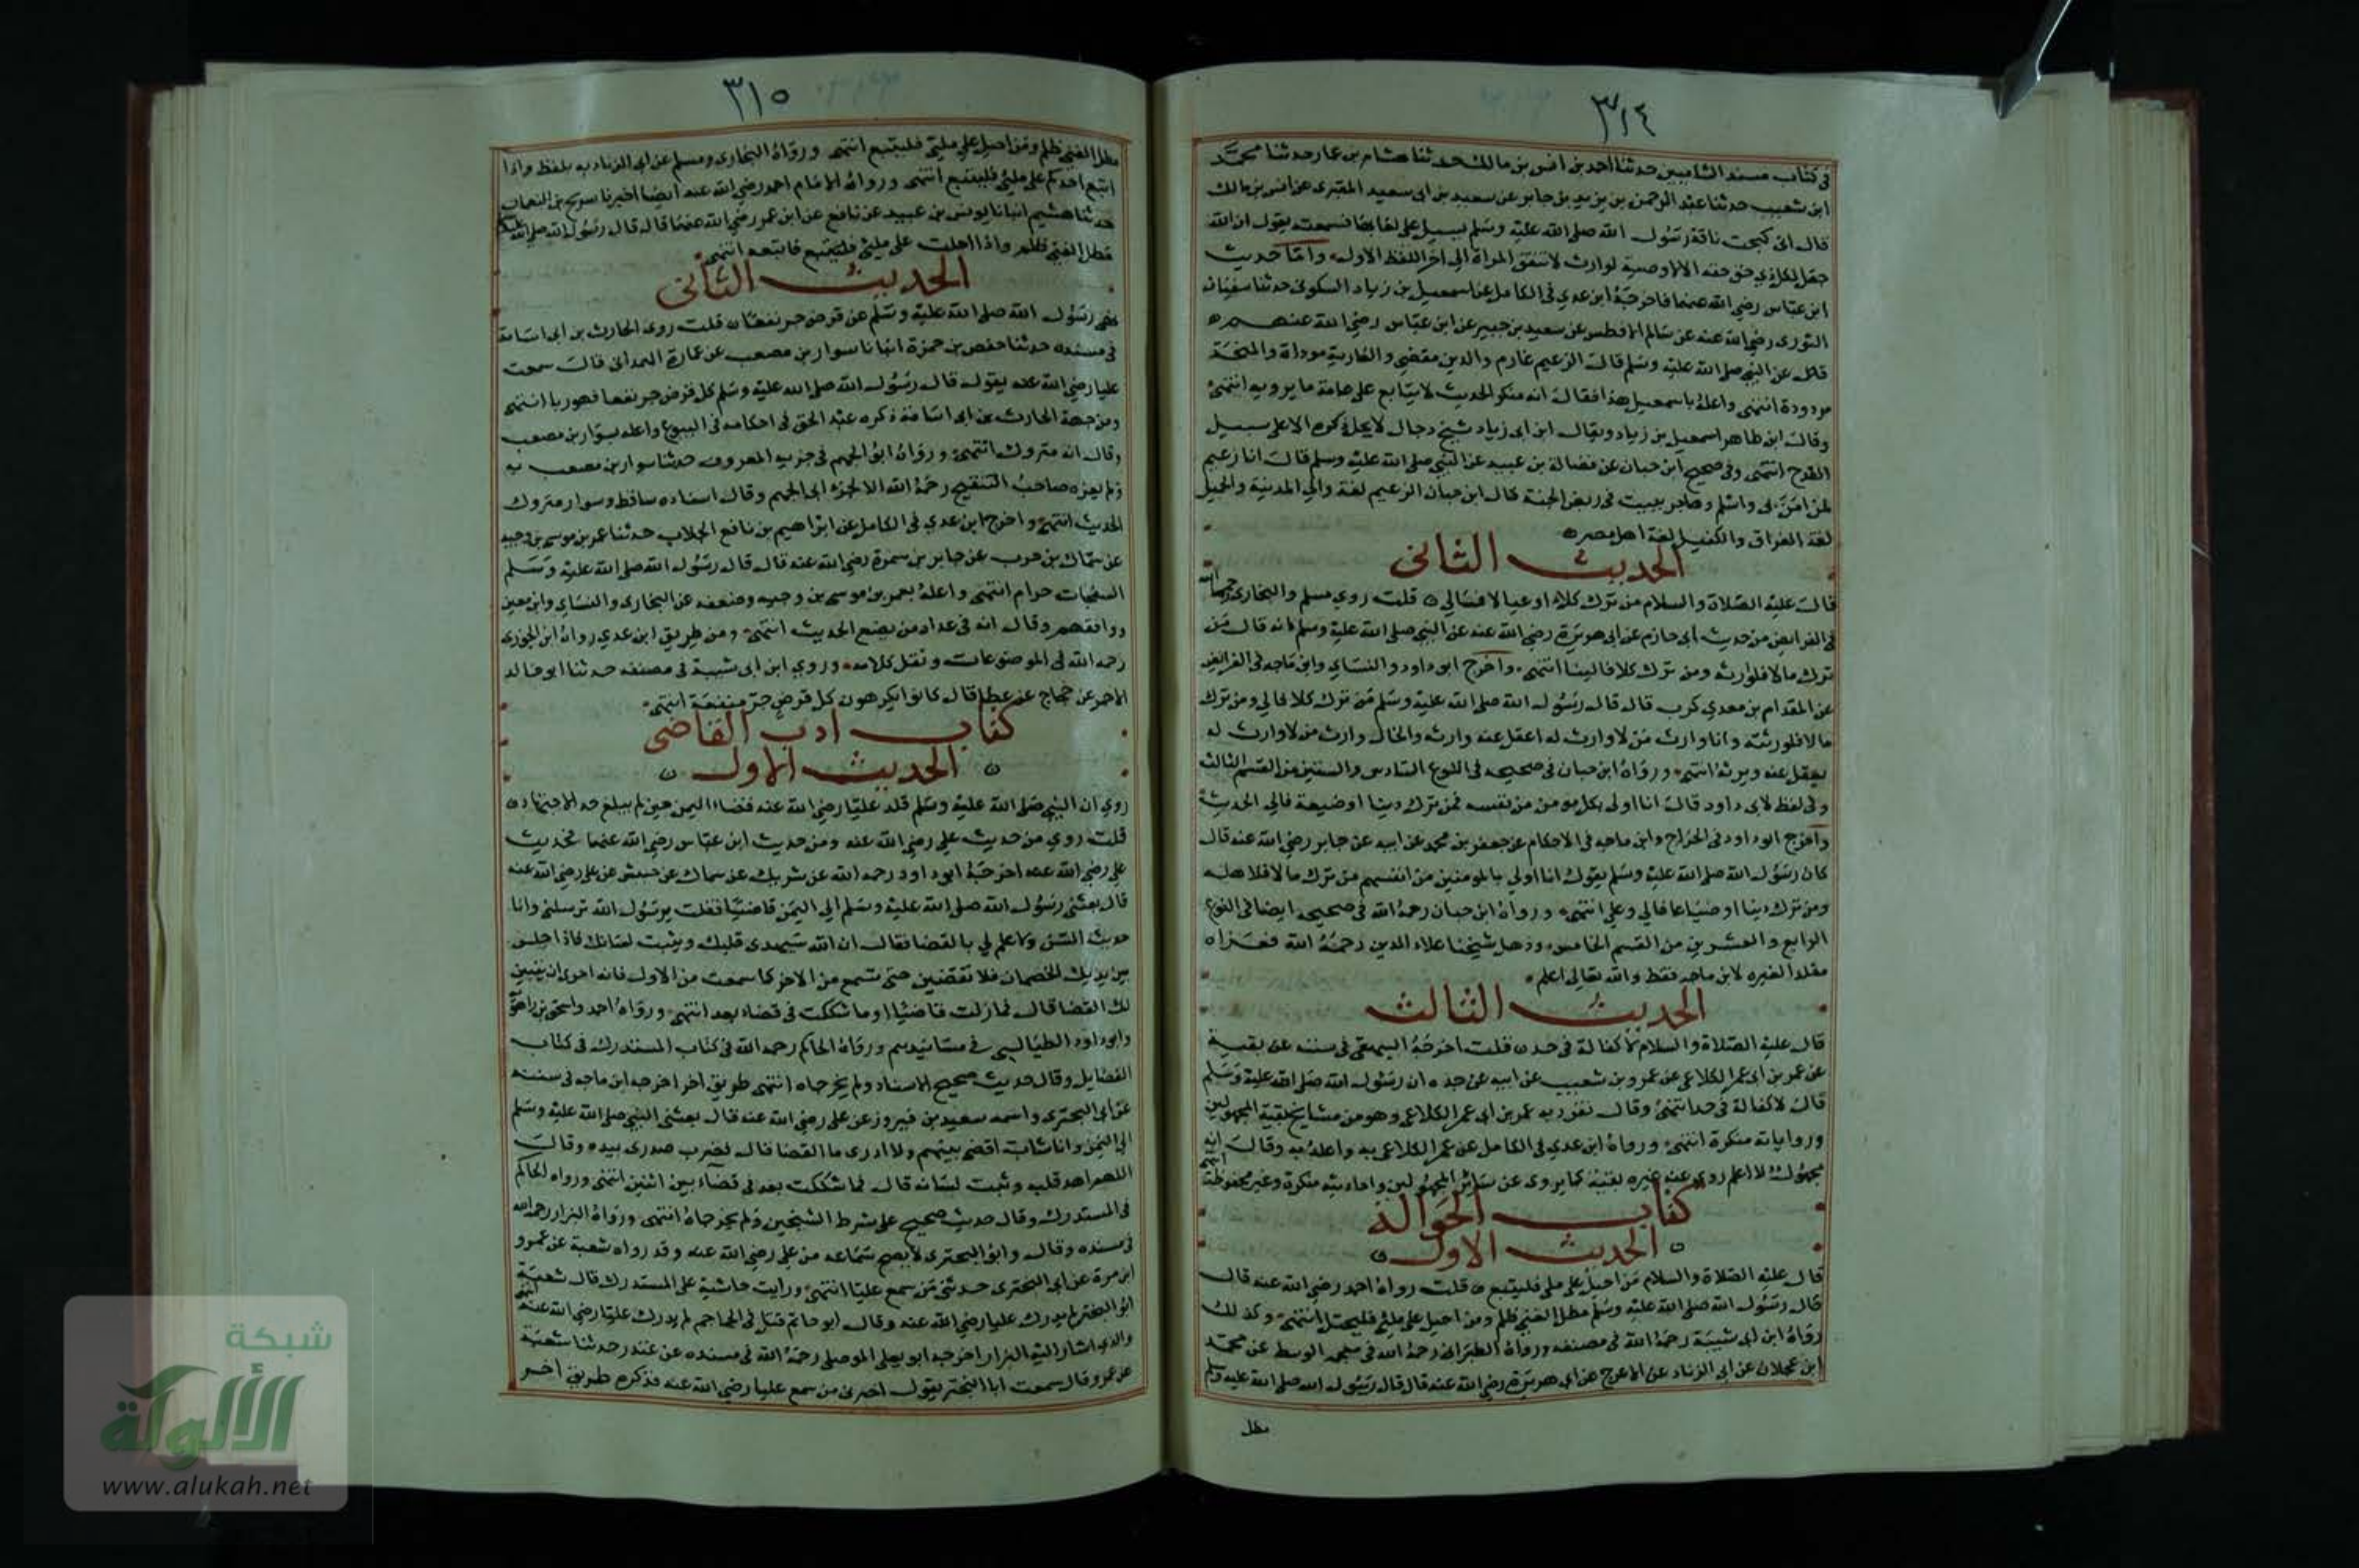 ٣١٤
في كتاب مسند الشاميين حدثنا احمد بن انس بن مالك حدثنا هشام بن عمار حدثنا محمد
ابن شعيب حدثنا عبد الرحمن بن يزيد بن جابر عن سعيد بن ابي سعيد المقبري عن انس بن مالك
قال اني تحت ناقة رسول الله صلى الله عليه وسلم يسيل علي لعابها فسمعته يقول ان الله
جعل لكل ذي حق حقه الا لا وصية لوارث لا تنفق المراة الى اخر اللفظ الاول واما حديث
ابن عباس رضي الله عنهما فاخرجه ابن عدي في الكامل عن اسمعيل بن زياد السكوني حدثنا سفيان
الثوري رضي الله عنه عن سالم الافطس عن سعيد بن جبير عن ابن عباس رضي الله عنهم
قال عن النبي صلى الله عليه وسلم قال الزعيم غارم والدين مقضي والعارية موداة والمنحة
مردودة انتهى واعله باسمعيل هذا فقال انه منكر الحديث لا يتابع على عامة ما يرويه انتهى
وقال ابن طاهر اسمعيل بن زياد ويقال ابن ابي زياد شيخ دجال لا يحل ذكره الا على سبيل
القدح انتهى وفي صحيح ابن حبان عن فضالة بن عبيد عن النبي صلى الله عليه وسلم قال انا زعيم
لمن امن بي واسلم وهاجر ببيت في ربض الجنة قال ابن حبان الزعيم لغة والي المدينة والحميل
لغة العراق والكفيل لغة اهل مصر
الحديث الثاني
قال عليه الصلاة والسلام من ترك كلا او عيالا فالي قلت روي مسلم والبخاري رحمهما الله
في الفرائض من حديث ابي حازم عن ابي هريرة رضي الله عنه عن النبي صلى الله عليه وسلم انه قال من
ترك مالا فلوارثه ومن ترك كلا فالينا انتهى واخرج ابو داود والنسائي وابن ماجه في الفرائض
عن المقدام بن معدي كرب قال قال رسول الله صلى الله عليه وسلم من ترك كلا فالي ومن ترك
مالا فلورثته وانا وارث من لا وارث له اعقل عنه وارثه والخال وارث من لا وارث له
يعقل عنه ويرثه انتهى ورواه ابن حبان في صحيحه في النوع السادس والستين من القسم الثالث
وفي لفظ لابي داود قال انا اولى بكل مومن من نفسه فمن ترك دينا او ضيعة فالي الحديث
واخرج ابو داود في الخراج وابن ماجه في الاحكام عن جعفر بن محمد عن ابيه عن جابر رضي الله عنه قال
كان رسول الله صلى الله عليه وسلم يقول انا اولي بالمومنين من انفسهم من ترك مالا فلاهله
ومن ترك دينا او ضياعا فالي وعلي انتهى ورواه ابن حبان رحمه الله في صحيحه ايضا في النوع
الرابع والعشرين من القسم الخامس وذهل شيخنا علاء الدين رحمه الله فعزاه
مقلدا لغيره لابن ماجه فقط والله تعالى اعلم
الحديث الثالث
قال عليه الصلاة والسلام لا كفالة في حد قلت اخرجه البيهقي في سننه عن بقية
عن عمر بن ابي عمر الكلاعي عن عمرو بن شعيب عن ابيه عن جده ان رسول الله صلى الله عليه وسلم
قال لا كفالة في حد انتهى وقال تفرد به عمر بن ابي عمر الكلاعي وهو من مشايخ بقية المجهولين
وروايته منكرة انتهى ورواه ابن عدي في الكامل عن عمر الكلاعي به واعله به وقال انه
مجهول لا اعلم روي عنه غيره بقية كما يروى عن سائر المجهولين واحاديثه منكرة وغير محفوظة انتهى
كتاب الحوالة
الحديث الاول
قال عليه الصلاة والسلام من احيل على ملي فليتبع قلت رواه احمد رضي الله عنه قال
قال رسول الله صلى الله عليه وسلم مطل الغني ظلم ومن احيل على ملئ فليحتل انتهى وكذلك
رواه ابن ابي شيبة رحمه الله في مصنفه ورواه الطبراني رحمه الله في معجمه الوسط عن محمد
ابن عجلان عن ابي الزناد عن الاعرج عن ابي هريرة رضي الله عنه قال قال رسول الله صلى الله عليه وسلم
مطل
٣١٥
مطل الغني ظلم ومن احيل على ملئ فليتبع انتهى ورواه البخاري ومسلم عن ابي الزناد به بلفظ واذا
اتبع احدكم على ملئ فليتبع انتهى ورواه الامام احمد رضي الله عنه ايضا اخبرنا سريج بن النعمان
حدثنا هشيم انبانا يونس بن عبيد عن نافع عن ابن عمر رضي الله عنهما قال قال رسول الله صلى الله عليه وسلم
مطل الغني ظلم واذا احلت على ملئ فاتبعه انتهى
الحديث الثاني
نهى رسول الله صلى الله عليه وسلم عن قرض جر نفعا قلت روى الحارث بن ابي اسامة
في مسنده حدثنا حفص بن حمزة انبانا سوار بن مصعب عن عمارة الهمداني قال سمعت
عليا رضي الله عنه يقول قال رسول الله صلى الله عليه وسلم كل قرض جر نفعا فهو ربا انتهى
ومن جهة الحارث بن ابي اسامة ذكره عبد الحق في احكامه في البيوع واعله بسوار بن مصعب
وقال انه متروك انتهى ورواه ابو الجهم في جزيه المعروف حدثنا سوار بن مصعب به
ولم يعزه صاحب التنقيح رحمه الله الا لجزء ابي الجهم وقال اسناده ساقط وسوار متروك
الحديث انتهى واخرج ابن عدي في الكامل عن ابراهيم بن نافع الجلاب حدثنا عمر بن موسى بن وجيه
عن سماك بن حرب عن جابر بن سمرة رضي الله عنه قال قال رسول الله صلى الله عليه وسلم
السفتجات حرام انتهى واعله بعمر بن موسى بن وجيه وضعفه عن البخاري والنساي وابن معين
ووافقهم وقال انه في عداد من يضع الحديث انتهى ومن طريق ابن عدي رواه ابن الجوزي
رحمه الله في الموضوعات ونقل كلامه وروي ابن ابي شيبة في مصنفه حدثنا ابو خالد
الاحمر عن حجاج عن عطا قال كانوا يكرهون كل قرض جر منفعة انتهى
كتاب ادب القاضي
الحديث الاول
روي ان النبي صلى الله عليه وسلم قلد عليا رضي الله عنه قضاء اليمن حين لم يبلغ حد الاجتهاد
قلت روي من حديث علي رضي الله عنه ومن حديث ابن عباس رضي الله عنهما فحديث
علي رضي الله عنه اخرجه ابو داود رحمه الله عن شريك عن سماك عن حنش عن علي رضي الله عنه
قال بعثني رسول الله صلى الله عليه وسلم الى اليمن قاضيا فقلت يرسول الله ترسلني وانا
حديث السن ولا علم لي بالقضا فقال ان الله سيهدي قلبك ويثبت لسانك فاذا جلس
بين يديك الخصمان فلا تقضين حتى تسمع من الاخر كما سمعت من الاول فانه احرى ان يتبين
لك القضا قال فما زلت قاضيا او ما شككت في قضاء بعد انتهى ورواه احمد واسحق بن راهويه
وابو داود الطيالسي في مسانيدهم ورواه الحاكم رحمه الله في كتاب المستدرك في كتاب
الفضايل وقال حديث صحيح الاسناد ولم يخرجاه انتهى طريق اخر اخرجه ابن ماجه في سننه
عن ابي البختري واسمه سعيد بن فيروز عن علي رضي الله عنه قال بعثني النبي صلى الله عليه وسلم
الى اليمن وانا شاب اقضي بينهم ولا ادري ما القضا قال فضرب صدري بيده وقال
اللهم اهد قلبه وثبت لسانه قال فما شككت بعد في قضاء بين اثنين انتهى ورواه الحاكم
في المستدرك وقال حديث صحيح على شرط الشيخين ولم يخرجاه انتهى ورواه البزار رحمه الله
في مسنده وقال وابو البختري لا يصح سماعه من علي رضي الله عنه وقد رواه شعبة عن عمرو
ابن مرة عن ابي البختري حدثني من سمع عليا انتهى ورايت حاشية على المستدرك قال شعبة
ابو البختري لم يدرك عليا رضي الله عنه وقال ابو حاتم قتل في الجماجم لم يدرك عليا رضي الله عنه انتهى
والذي اشار اليه البزار اخرجه ابو يعلى الموصلي رحمه الله في مسنده عن غندر حدثنا شعبة
عن عمرو قال سمعت ابا البختري يقول اخبرني من سمع عليا رضي الله عنه فذكره طريق اخر
شبكة
الألوكة
www.alukah.net